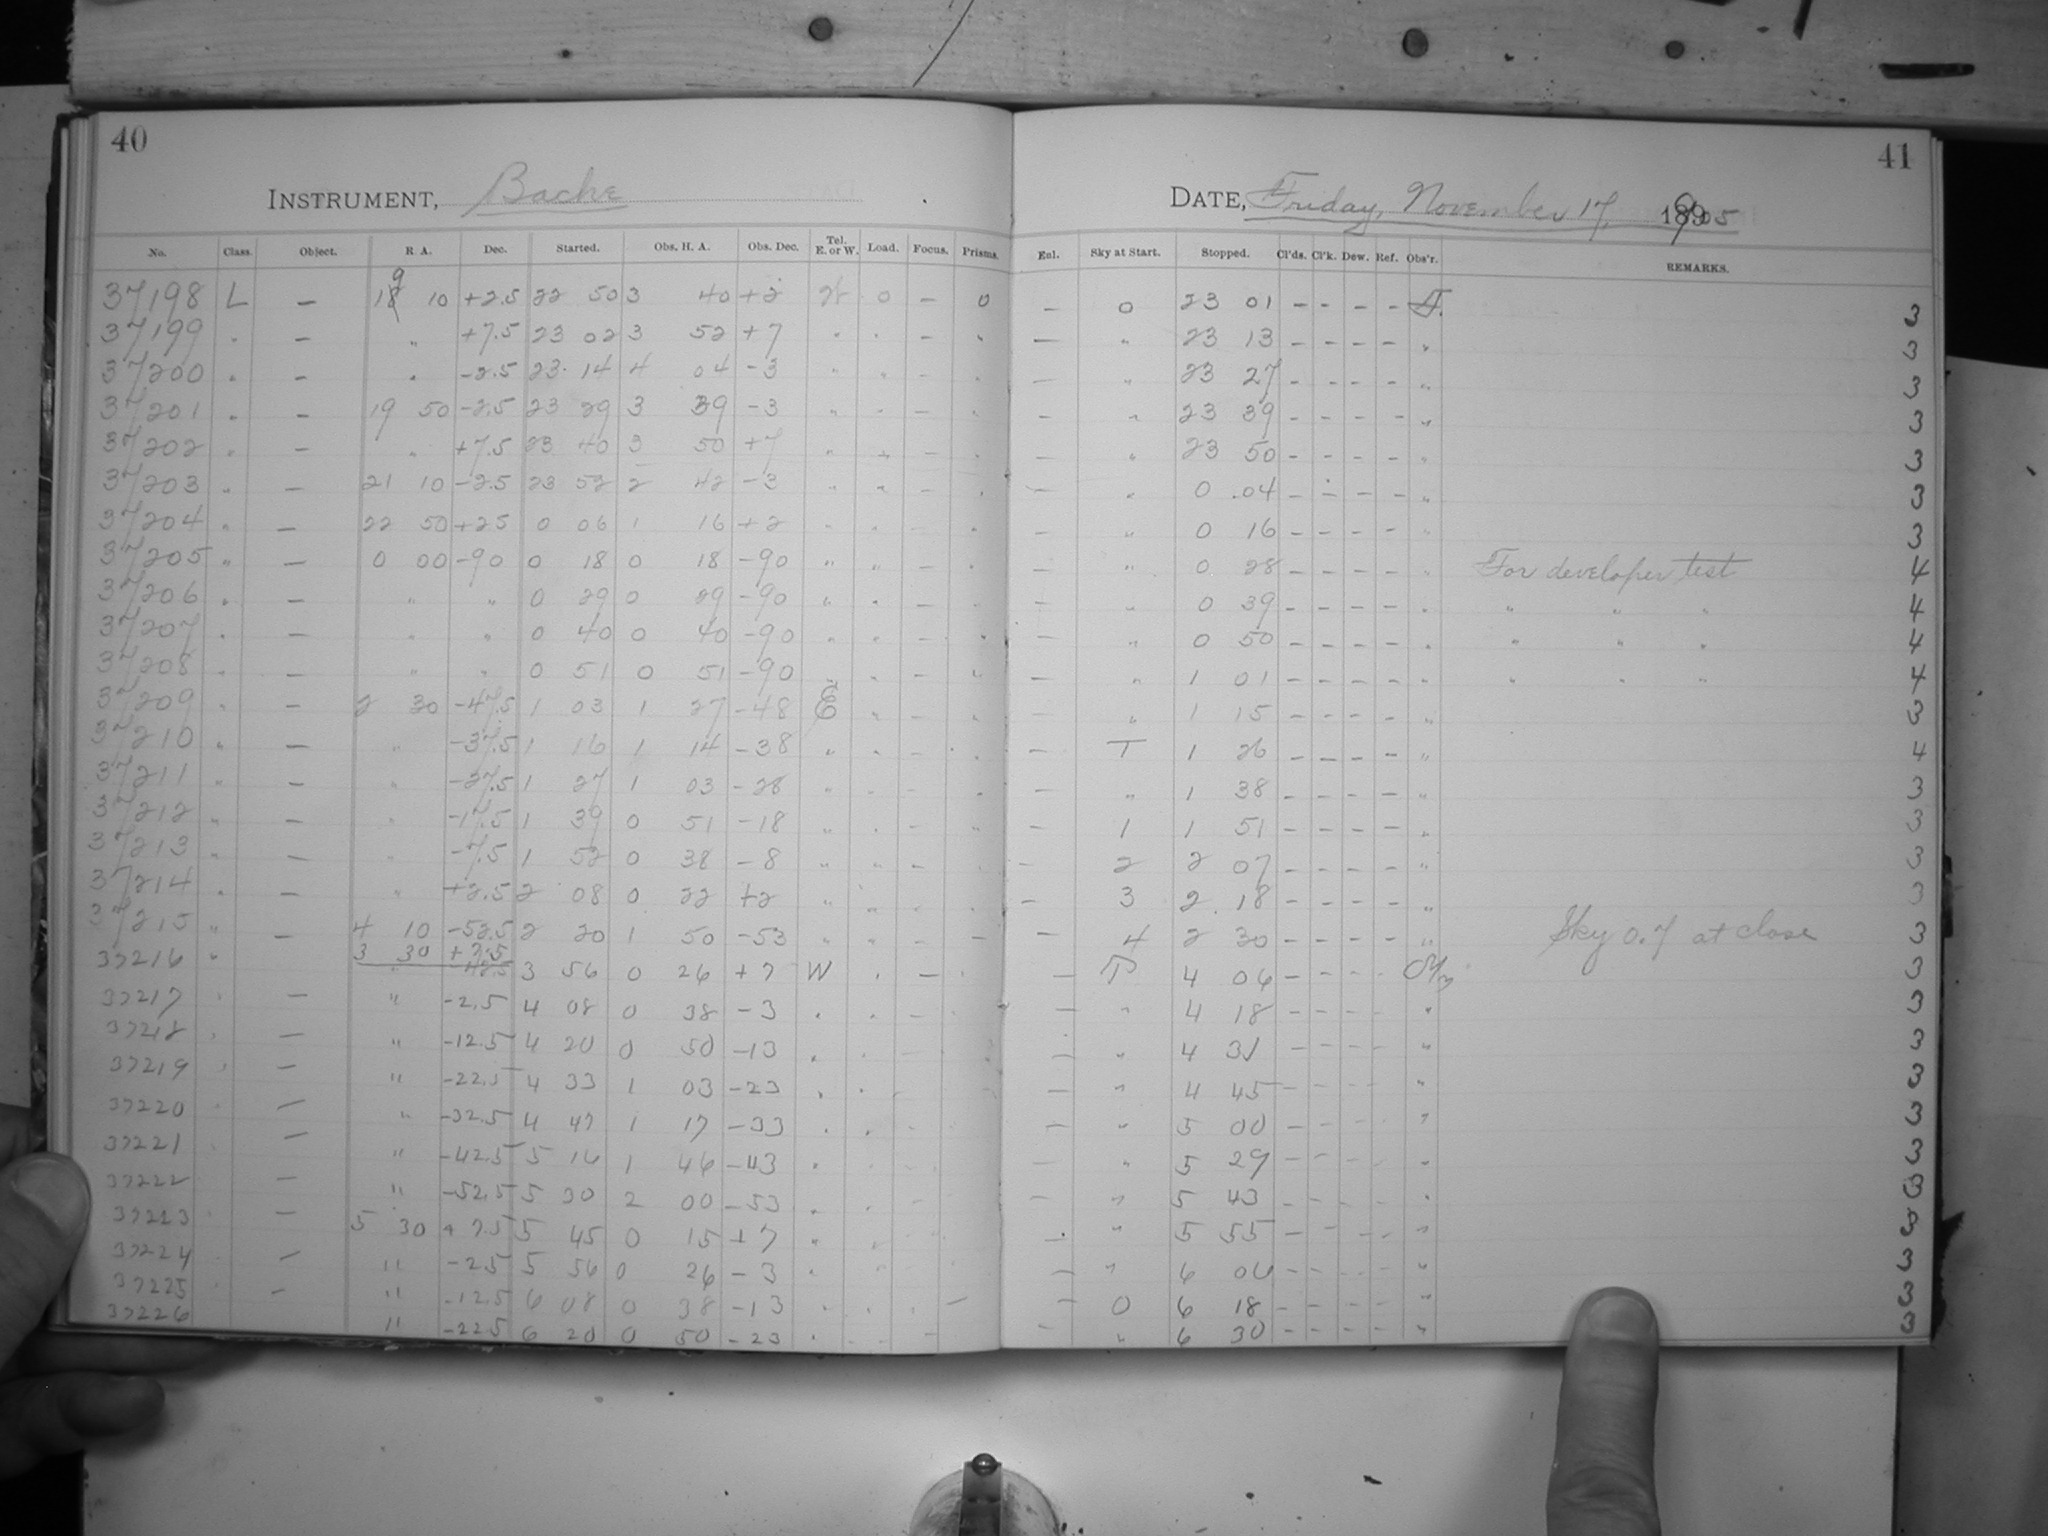 40 41
INSTRUMENT, Bache DATE, Friday, November 17, 1905
No. Class. Object. R. A. Dec. Started. Obs. H. A. Obs. Dec. Tel. E. or W. Load. Focus. Prisms. Enl. Sky at Start. Stopped. Cl'ds. Cl'k. Dew. Ref. Obs'r. REMARKS.
37198 L — 19 10 +2.5 22 50 3 40 +2 W 0 — 0 — 0 23 01 — — — — 3
37199 " — " +7.5 23 02 3 52 +7 " " — " — " 23 13 — — — — " 3
37200 " — " -2.5 23 14 4 04 -3 " " — " — " 23 27 — — — — " 3
37201 " — 19 50 -2.5 23 29 3 39 -3 " " — " — " 23 39 — — — — " 3
37202 " — " +7.5 23 40 3 50 +7 " " — " — " 23 50 — — — — " 3
37203 " — 21 10 -2.5 23 52 2 42 -3 " " — " — " 0 04 — — — — " 3
37204 " — 22 50 +25 0 06 1 16 +2 " " — " — " 0 16 — — — — " 3
37205 " — 0 00 -90 0 18 0 18 -90 " " — " — " 0 28 — — — — " For developer test 4
37206 " — " " 0 29 0 29 -90 " " — " — " 0 39 — — — — " " " " 4
37207 " — " " 0 40 0 40 -90 " " — " — " 0 50 — — — — " " " " 4
37208 " — " " 0 51 0 51 -90 " " — " — " 1 01 — — — — " " " " 4
37209 " — 2 30 -47.5 1 03 1 27 -48 E " — " — " 1 15 — — — — " 3
37210 " — " -37.5 1 16 1 14 -38 " " — " — T 1 26 — — — — " 4
37211 " — " -27.5 1 27 1 03 -28 " " — " — " 1 38 — — — — " 3
37212 " — " -17.5 1 39 0 51 -18 " " — " — 1 1 51 — — — — " 3
37213 " — " -7.5 1 52 0 38 -8 " " — " — 2 2 07 — — — — " 3
37214 " — " +2.5 2 08 0 22 +2 " " — " — 3 2 18 — — — — " 3
37215 " — 4 10 -52.5 2 20 1 50 -53 " " — — — 4 2 30 — — — — " Sky 0.7 at close 3
37216 " 3 30 +7.5 3 56 0 26 +7 W " — — 4 06 — — — — 3
37217 " — " -2.5 4 08 0 38 -3 " " — " — " 4 18 — — — — " 3
37218 " — " -12.5 4 20 0 50 -13 " " — — " 4 31 — — — — " 3
37219 " — " -22.5 4 33 1 03 -23 " " — " 4 45 — — — — " 3
37220 " — " -32.5 4 47 1 17 -33 " " — " 5 00 — — — — " 3
37221 " — " -42.5 5 16 1 46 -43 " — " 5 29 — — — — " 3
37222 — " -52.5 5 30 2 00 -53 " — " 5 43 — — — — " 3
37223 " — 5 30 +7.5 5 45 0 15 +7 " — " 5 55 — — — — " 3
37224 " — " -2.5 5 56 0 26 -3 " — " 6 06 — — — — " 3
37225 " — " -12.5 6 08 0 38 -13 " " " — — 0 6 18 — — — — " 3
37226 " -22.5 6 20 0 50 -23 " — — " 6 30 — — — — " 3